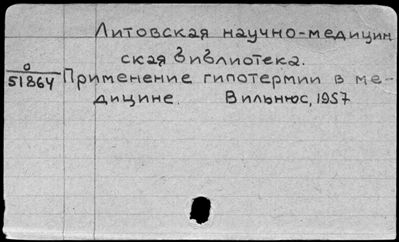 Литовская научно-медицин
ская библиотека.
о
51864
Применение гипотермии в ме-
дицине. Вильнюс, 1957